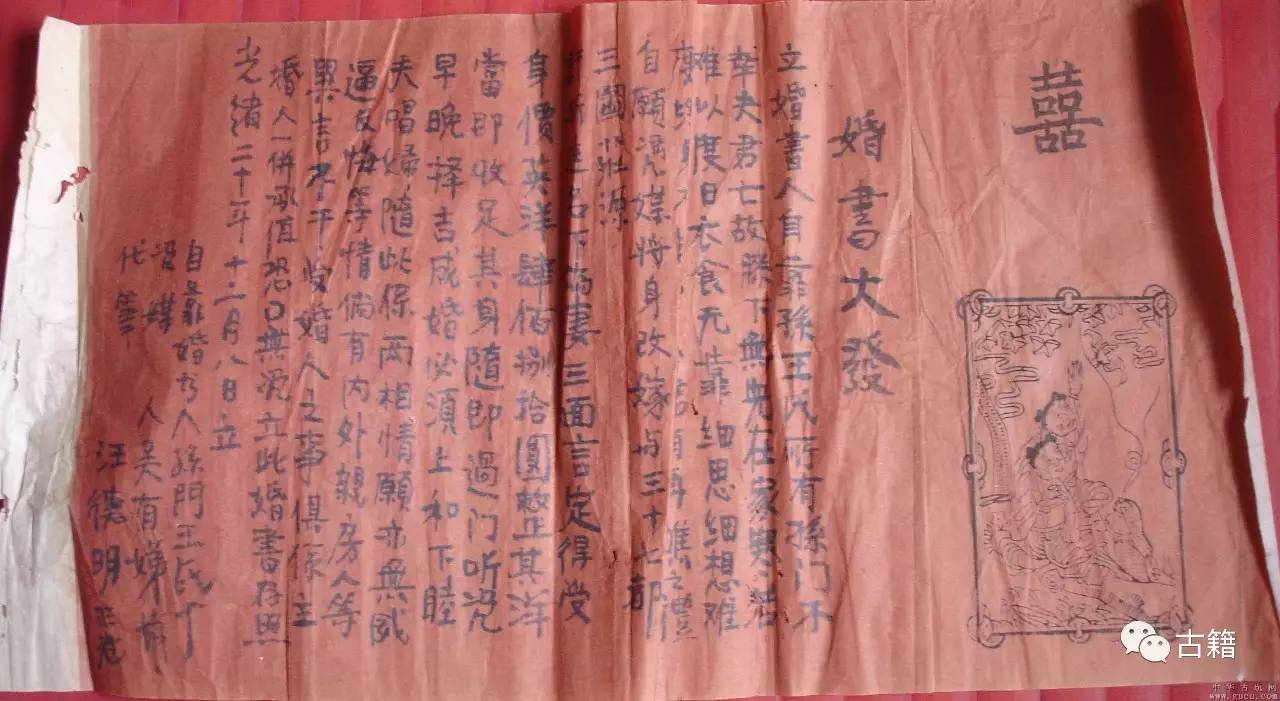 囍
婚書大發
立婚書人自靠孫王氏所有孫门不
幸夫君亡故膝下無兒在家寒苦
难以度日衣食无靠细思细想难
自願凴媒将身改嫁与三十七都
三圖 源
名下為妻三面言定得受
身價英洋肆佰捌拾圓整其洋
當即收足其身隨即過门听凴
早晚择吉成婚必須上和下睦
夫唱婦隨此係两相情願亦無威
逼反悔等情倘有内外親房人等
異言不干受婚人之事俱係主
婚人一併承值恐口無凴立此婚書存照
光緒二十年十二月八日立
自靠婚書人孫門王氏十
凴媒人吴有娣
代筆汪德明
古籍
中华古玩网
www.gucn.com